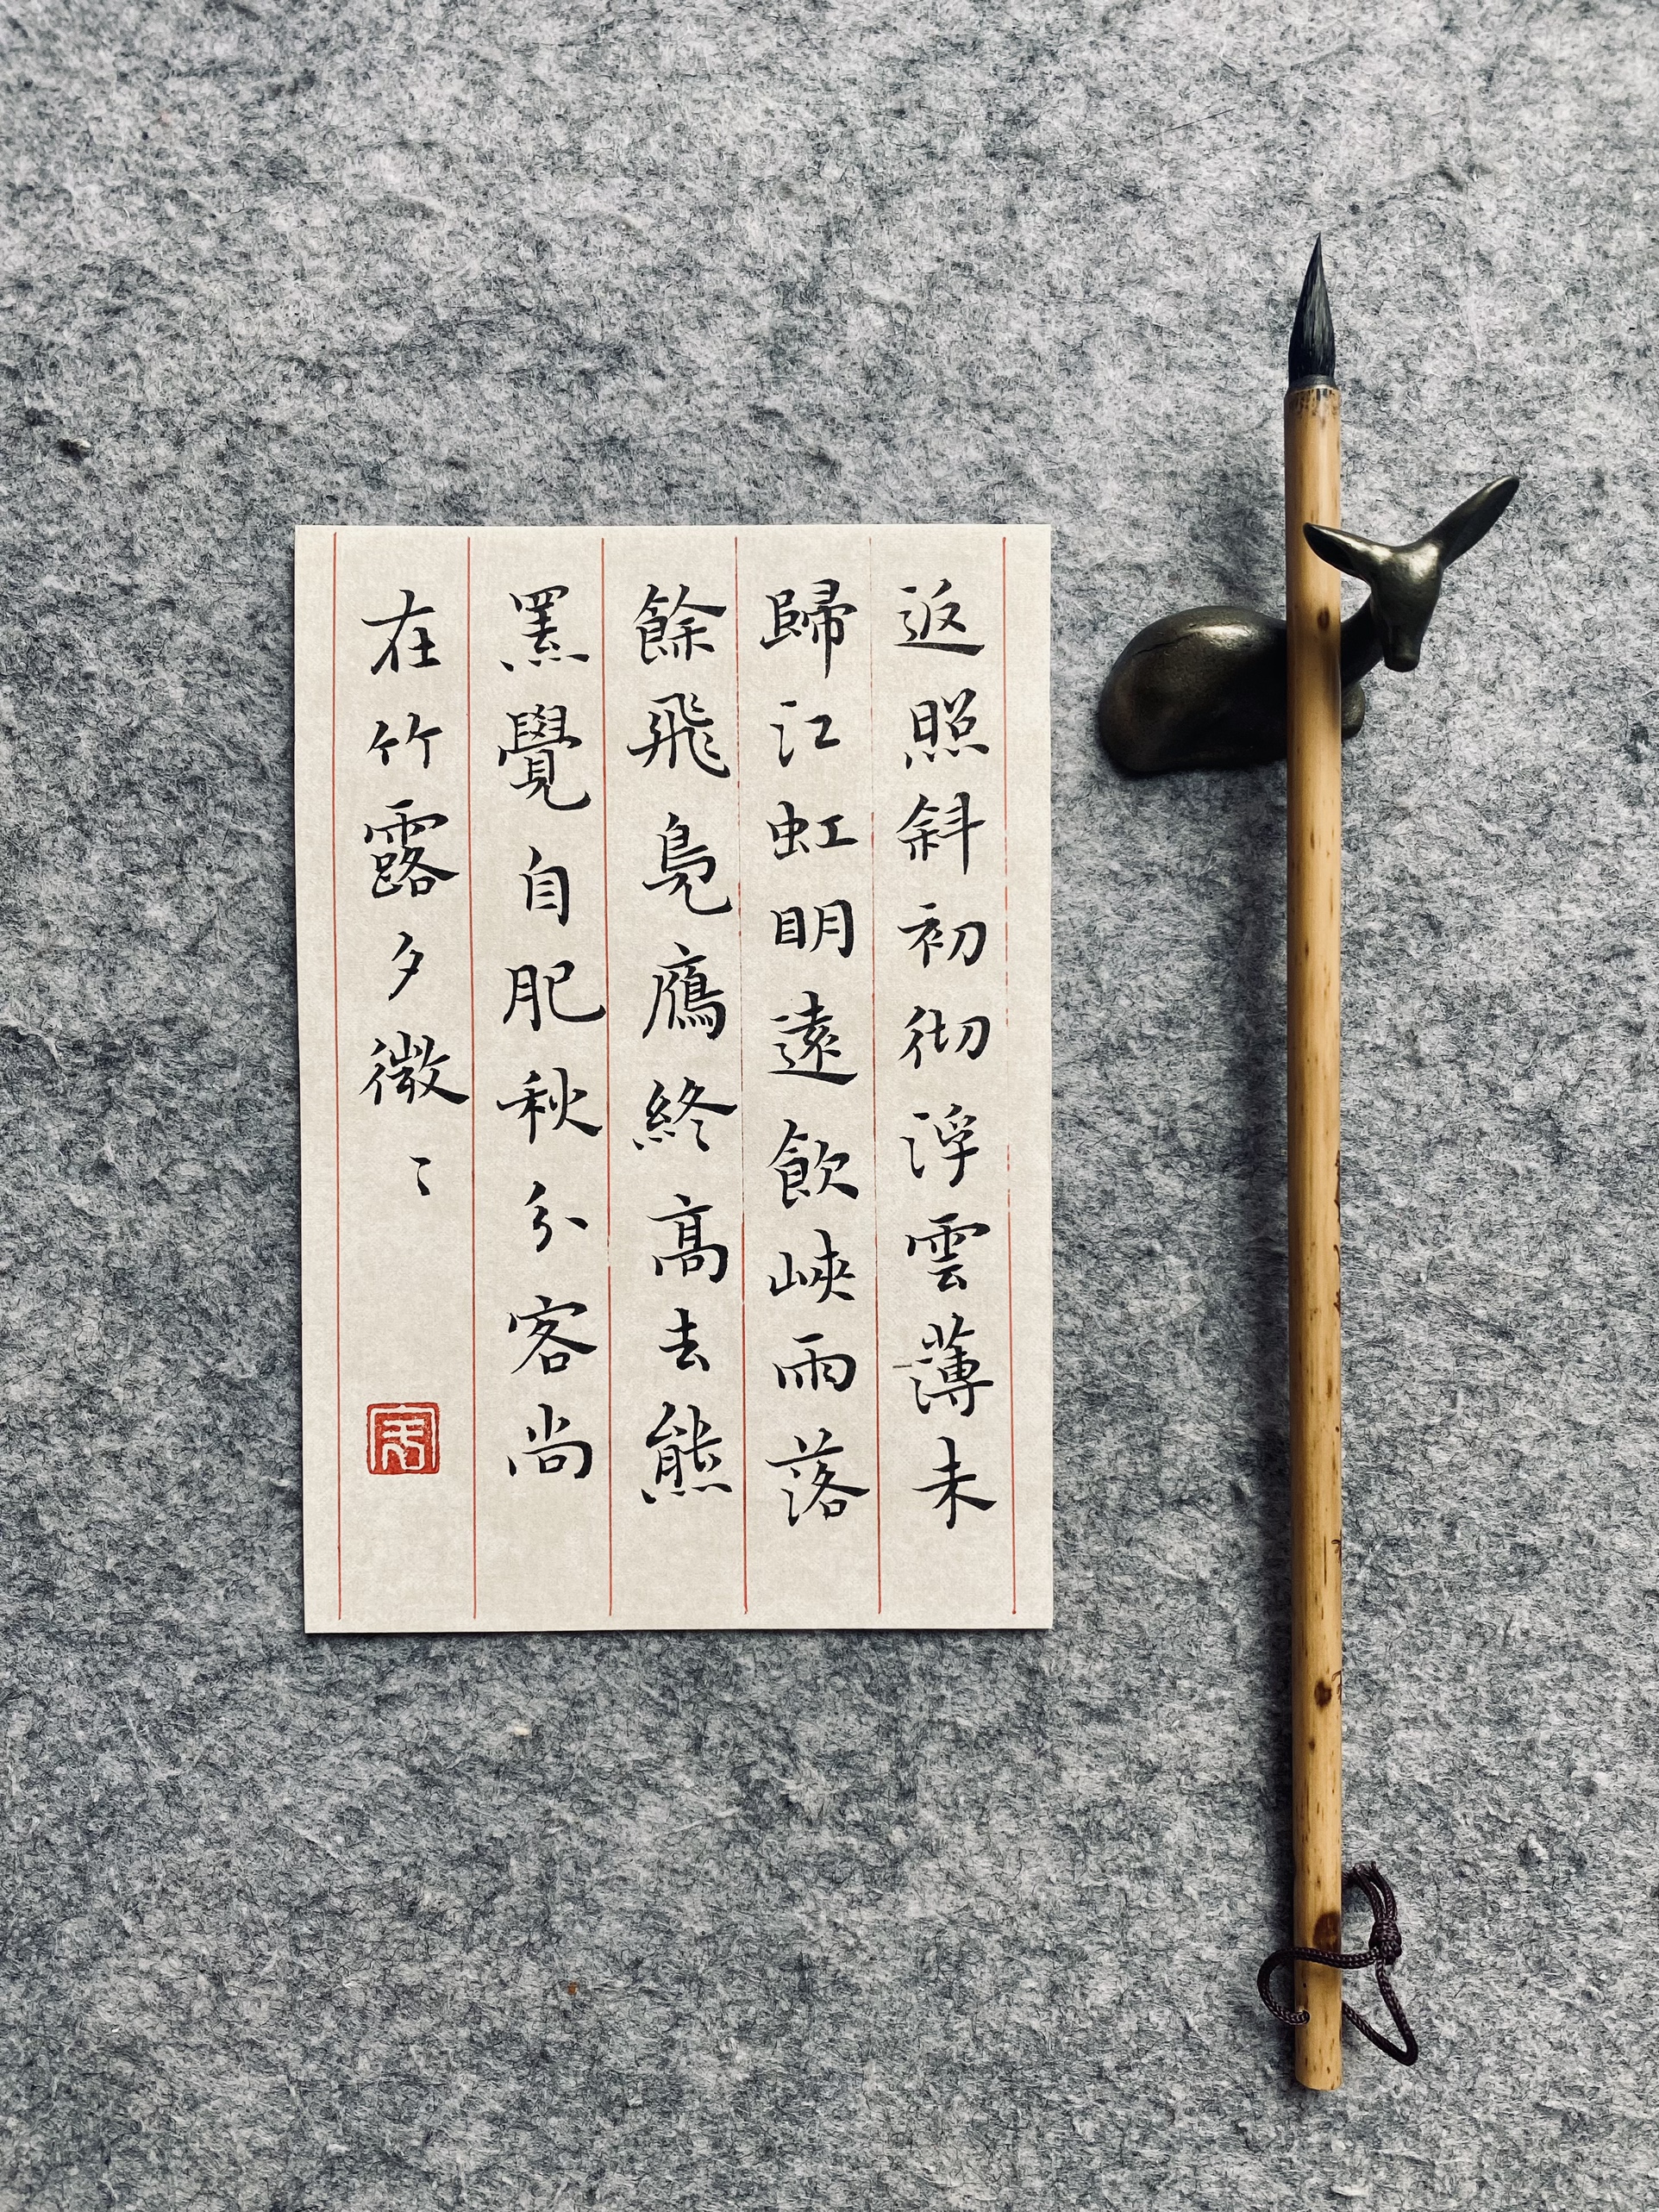 返照斜初彻浮雲薄未
歸江虹明遠飲峽雨落
餘飛鳧鴈終高去熊
羆覺自肥秋分客尚
在竹露夕微〻